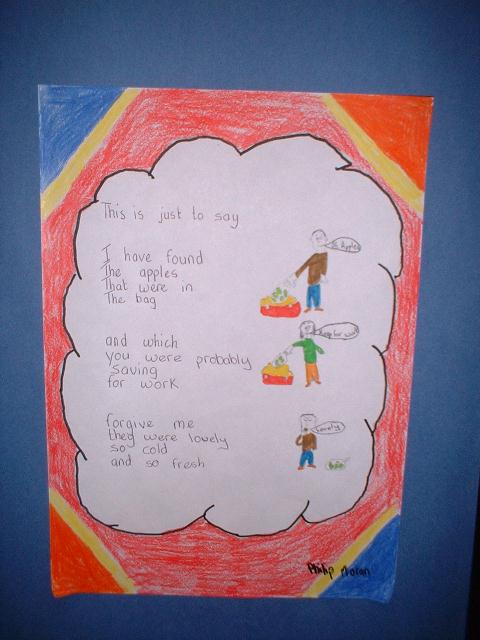 This is just to say
I have found
The apples
That were in
The bag
Apples
and which
you were probably
saving
for work
for work
forgive me
they were lovely
so cold
and so fresh
Lovely
Philip Moran